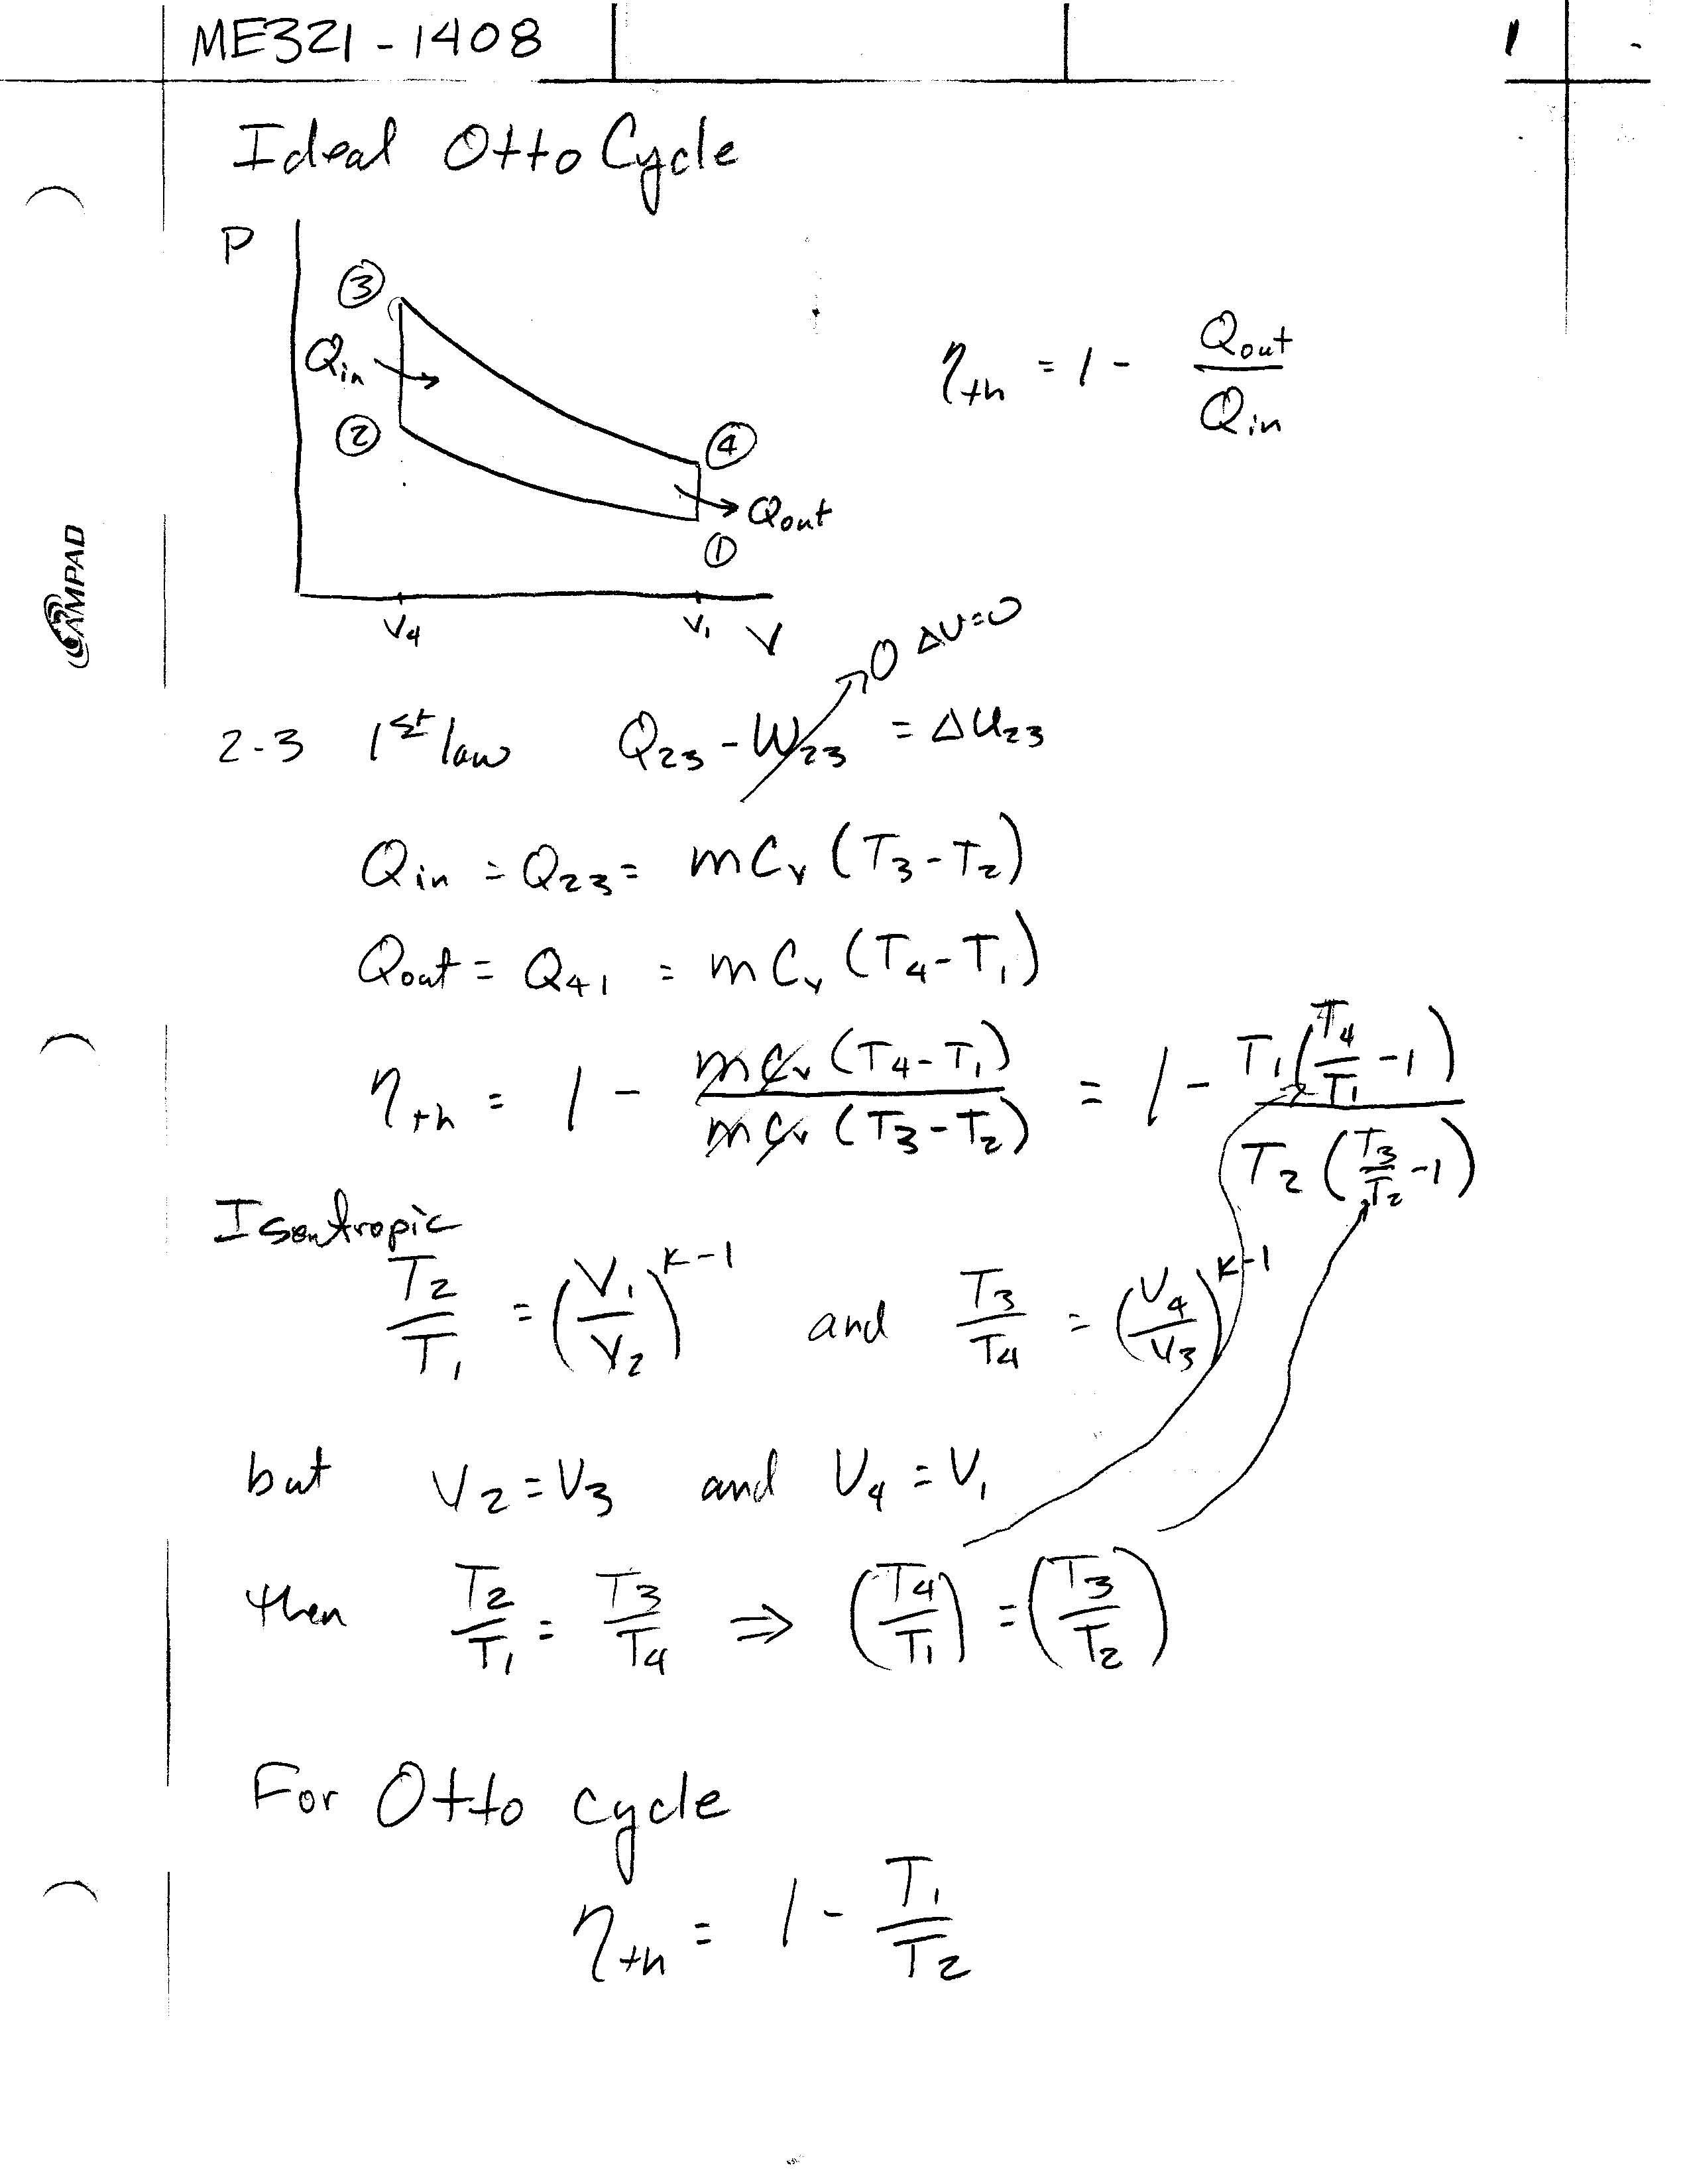 ME321-1408 1
Ideal Otto Cycle
P
③
Q_in
②
④
Q_out
①
V_4 V_1 V
η_th = 1 - Q_out / Q_in
AMPAD
0 ΔV=0
2-3 1st law Q_23 - W_23 = ΔU_23
Q_in = Q_23 = m C_v (T_3 - T_2)
Q_out = Q_41 = m C_v (T_4 - T_1)
η_th = 1 - m C_v (T_4 - T_1) / m C_v (T_3 - T_2) = 1 - T_1 (T_4/T_1 - 1) / T_2 (T_3/T_2 - 1)
Isentropic
T_2/T_1 = (V_1/V_2)^(k-1) and T_3/T_4 = (V_4/V_3)^(k-1)
but V_2 = V_3 and V_4 = V_1
then T_2/T_1 = T_3/T_4 ⇒ (T_4/T_1) = (T_3/T_2)
For Otto cycle
η_th = 1 - T_1/T_2